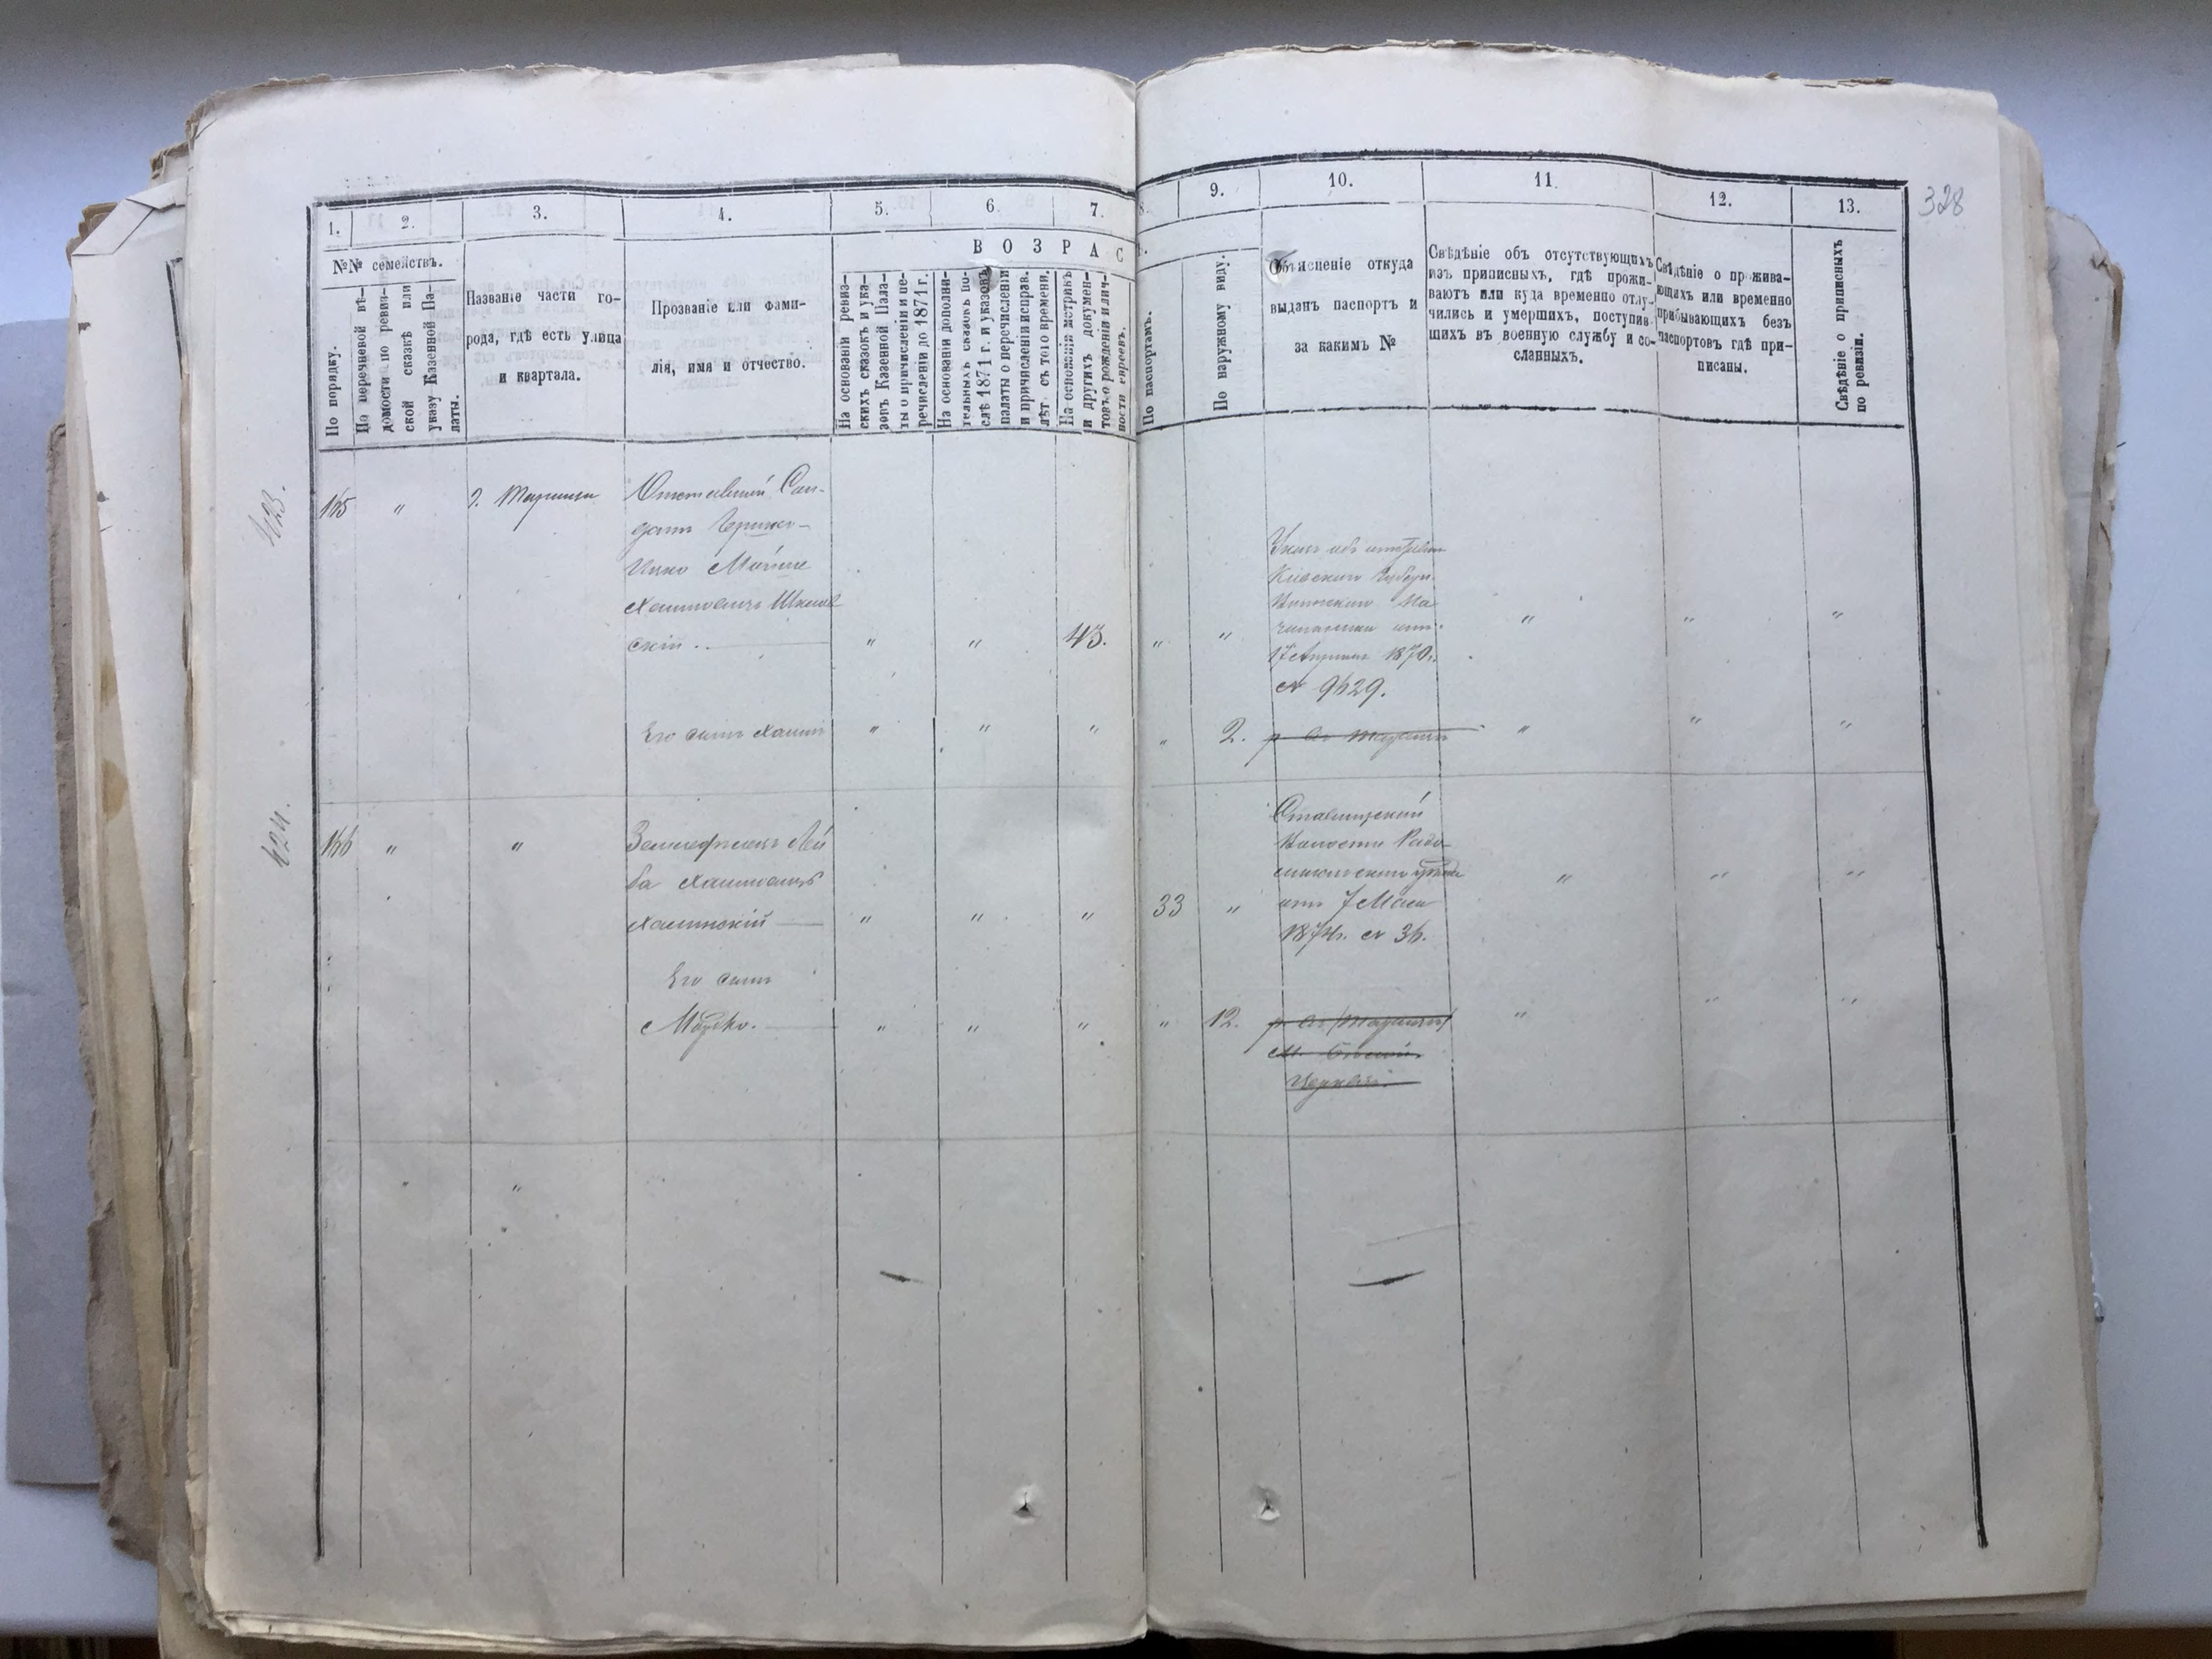 328
1. 2. 3. 4. 5. 6. 7. 8. 9. 10. 11. 12. 13.
№№ семействъ.
В О З Р А С
По порядку.
По перечневой вѣ-
домости по ревиз-
ской сказкѣ или
указу Казенной Па-
латы.
Названіе части го-
рода, гдѣ есть улица
и квартала.
Прозваніе или фами-
лія, имя и отчество.
На основаніи ревиз-
скихъ сказокъ и ука-
зовъ Казенной Пала-
ты о причисленіи и пе-
речисленіи до 1871 г.
На основаніи дополни-
тельныхъ сказокъ по-
слѣ 1871 г. и указовъ
палаты о перечисленіи
и причисленіи исправ.
лѣт. съ того времени.
На основаніи метрикъ
и другихъ докумен-
товъ о рожденіи и лич-
ности евреевъ.
По паспортамъ.
По наружному виду.
Объясненіе откуда
выданъ паспортъ и
за какимъ №
Свѣдѣніе объ отсутствующихъ
изъ приписныхъ, гдѣ прожи-
ваютъ или куда временно отлу-
чились и умершихъ, поступив-
шихъ въ военную службу и со-
сланныхъ.
Свѣдѣніе о прожива-
ющихъ или временно
прибывающихъ безъ
паспортовъ гдѣ при-
писаны.
Свѣдѣніе о приписныхъ
по ревизіи.
423.
165 " г. Тараща Отставной Сол-
датъ
Ицко
Хаимовичъ
скій. " " 43. " " " " "
Указъ объ отставкѣ
Кіевскаго Губерн.
Воинскаго На
чальника отъ
17 Апрѣля 1870 г.
№ 9429.
Его сынъ Хаимъ " " " " 2. р. въ Таращѣ " " "
424.
166 " " Лей
ба Хаимовичъ
" " " 33 " " " "
Ставищской
Волости Радо-
мысльскаго уѣзда
отъ 7 Мая
1874 г. № 36.
Его сынъ
Мошко. " " " " 12. р. въ /Таращѣ/ " " "
м. Бѣлой
Церкви.
"